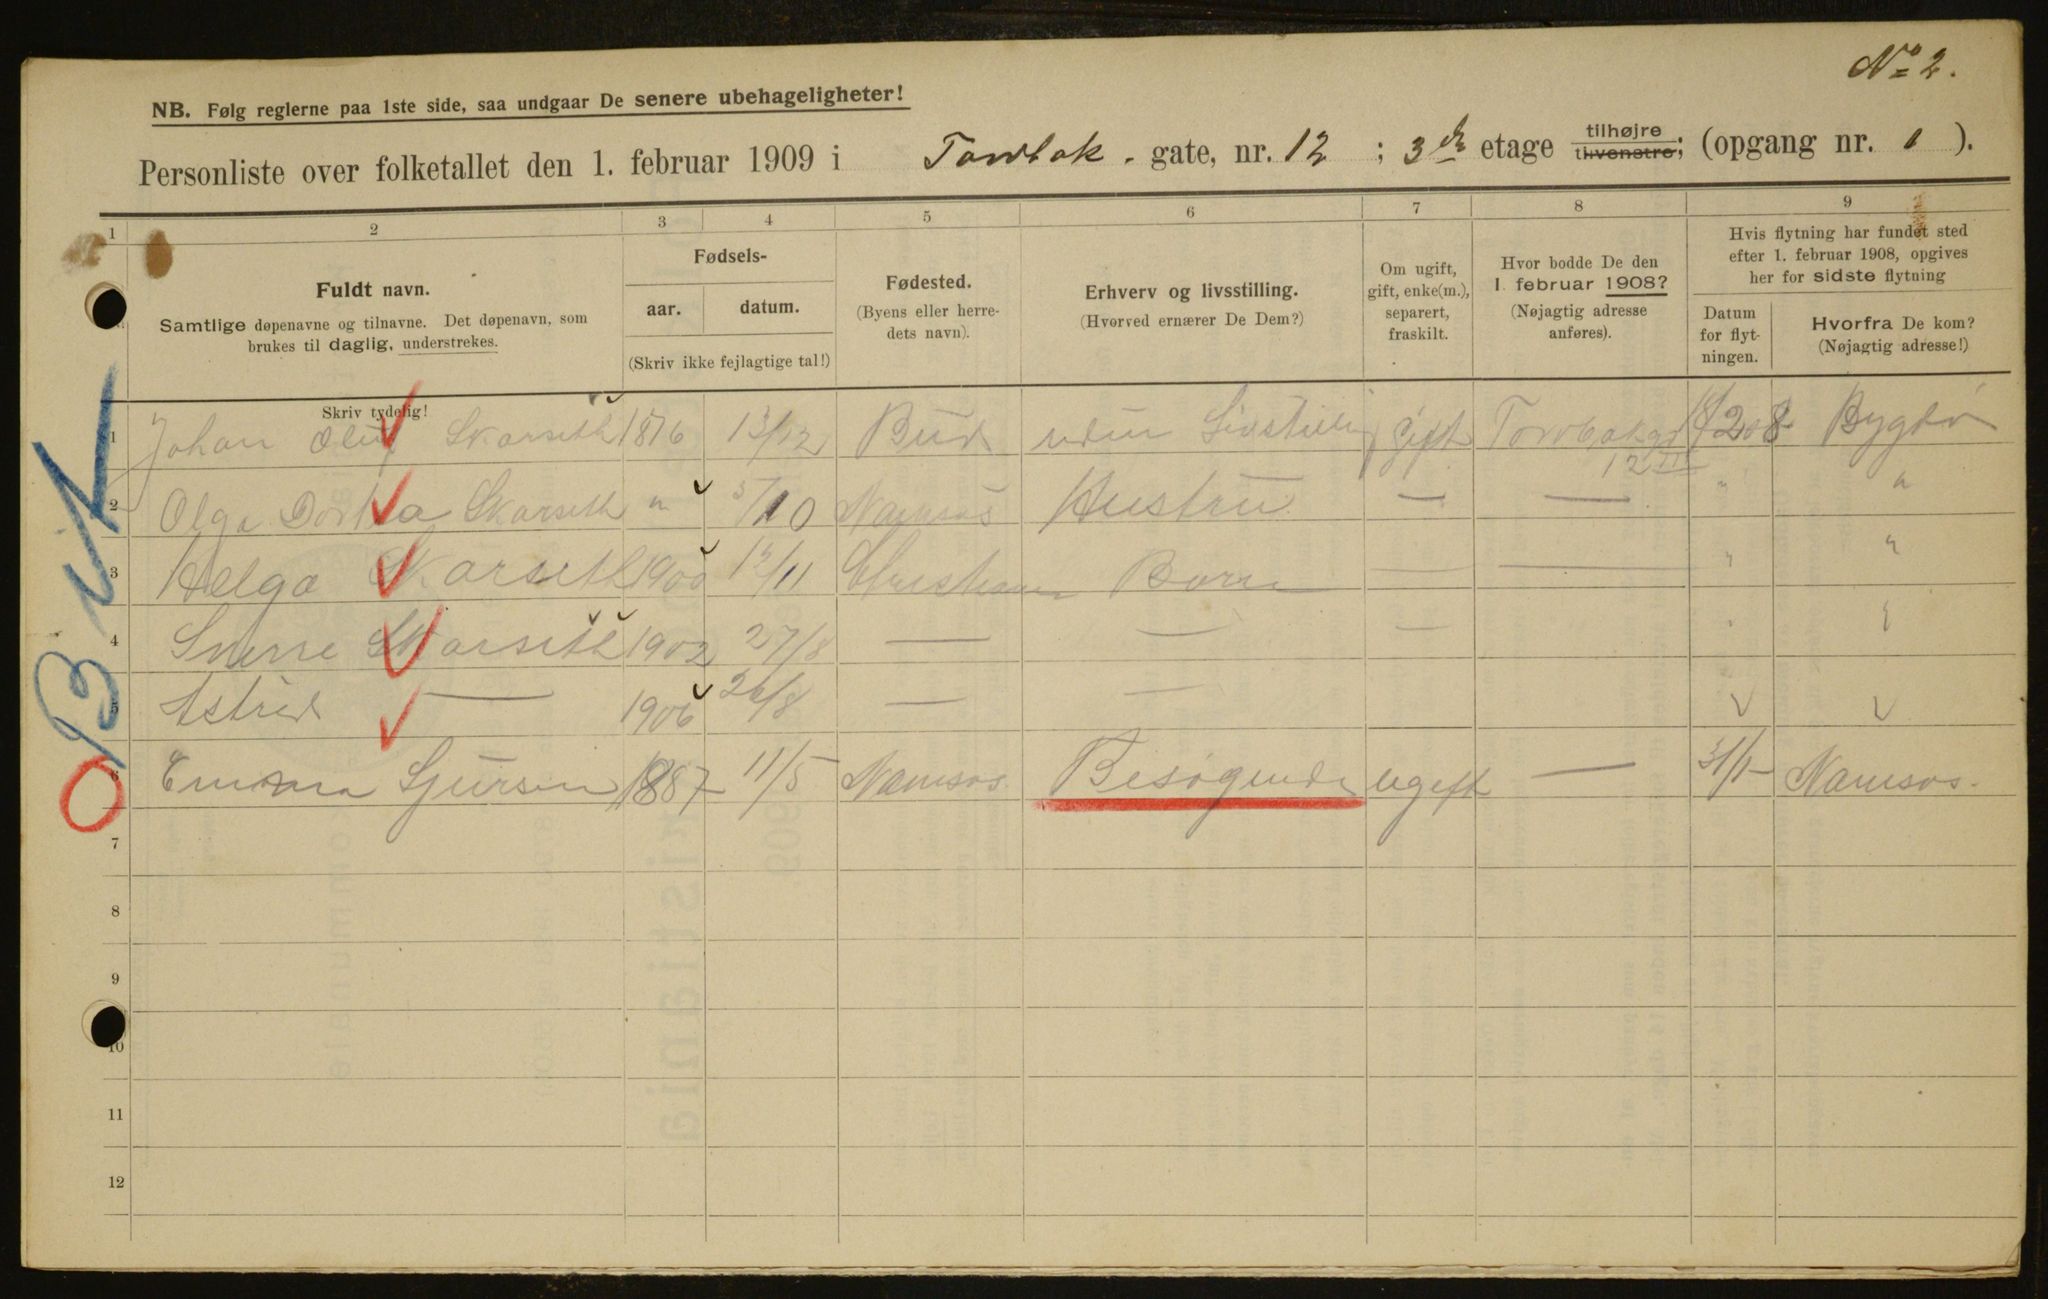 No 2.
NB. Følg reglerne paa 1ste side, saa undgaar De senere ubehageligheter!
Personliste over folketallet den 1. februar 1909 i Tordbak. gate, nr. 12; 3de etage tilhøjre tilvenstre; (opgang nr. 1).
1 2 3 4 5 6 7 8 9
Fuldt navn.
Samtlige døpenavne og tilnavne. Det døpenavn, som
brukes til daglig, understrekes.
Skriv tydelig!
Fødsels-
aar. datum.
(Skriv ikke fejlagtige tal!)
Fødested.
(Byens eller herre-
dets navn).
Erhverv og livsstilling.
(Hvorved ernærer De Dem?)
Om ugift,
gift, enke(m.),
separert,
fraskilt.
Hvor bodde De den
1. februar 1908?
(Nøjagtig adresse
anføres).
Hvis flytning har fundet sted
efter 1. februar 1908, opgives
her for sidste flytning
Datum
for flyt-
ningen.
Hvorfra De kom?
(Nøjagtig adresse!)
1 Johan Oluf Skarseth 1876 13/12 Bud uden Livstilling gift Tordbakgt 12 III 08 Bygdø
2 Olga Dortea Skarseth " 5/10 Namsos Hustru — — " "
3 Helga Skarseth 1900 Christiania Barn — — " "
4 Sverre Skarseth 1902 27/8 — — — " "
5 Astrid — 1906 26/8 — —
6 Emma Sjursen 1887 11/5 Namsos Besøgende ugift — 31/1 Namsos.
7
8
9
10
11
12
BiK